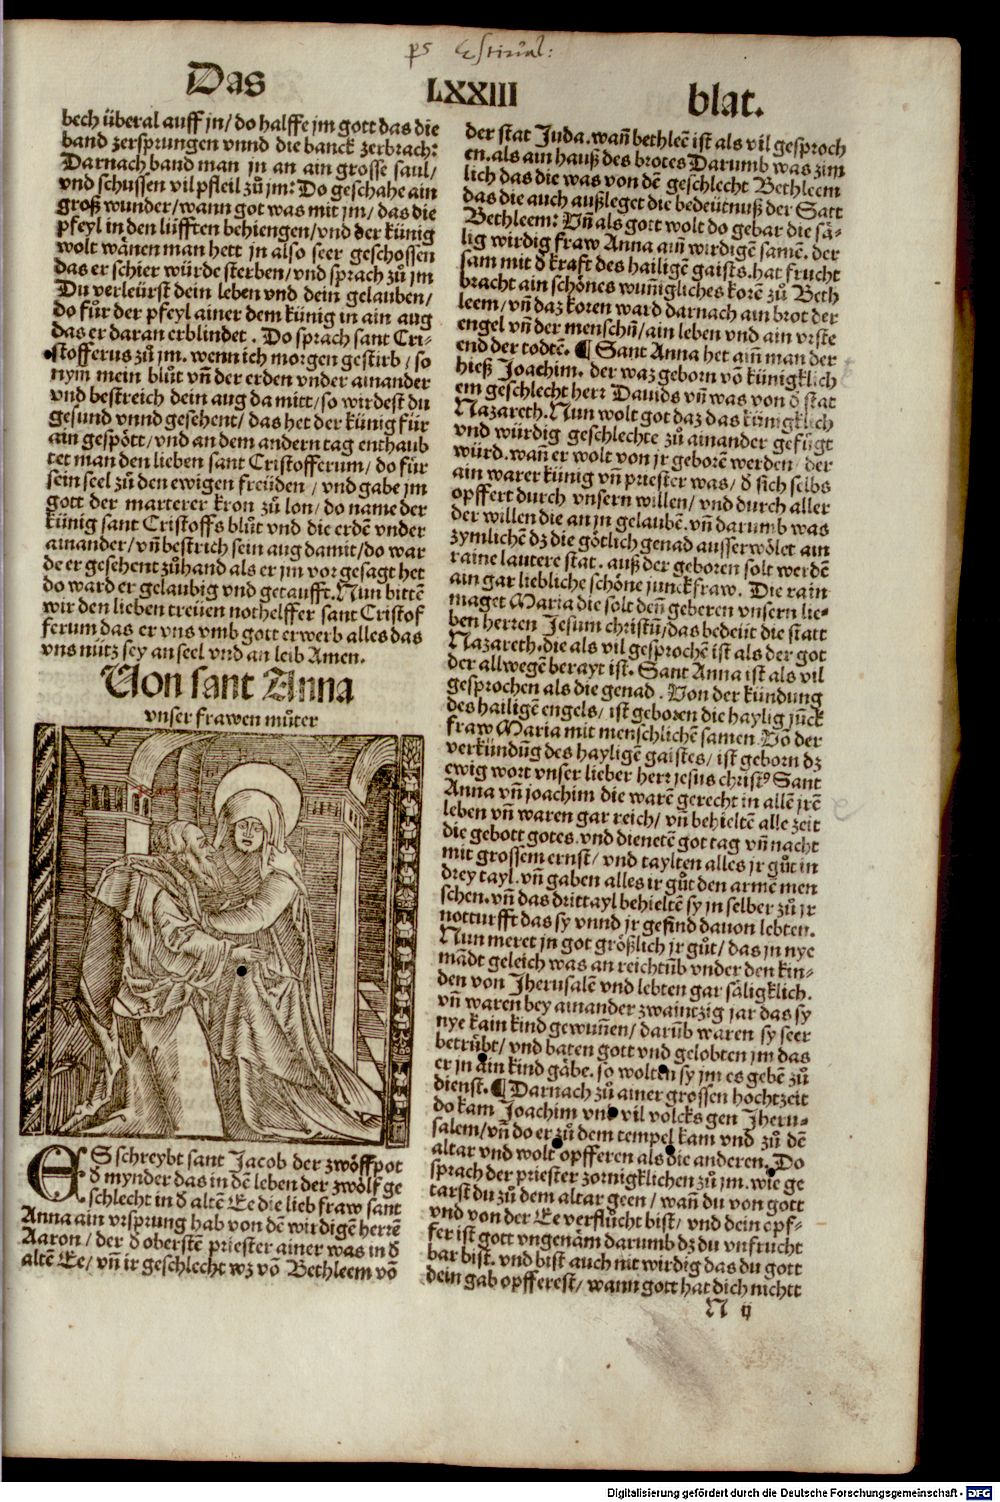 Das LXXIII blat.
bech überal auff jn/ do halffe jm gott das die
band zersprungen vnnd die banck zerbrach:
Darnach band man jn an ain grosse saul/
vnd schussen vil pfleil zů jm: Do geschahe ain
groß wunder/ wann got was mit jm/ das die
pfeyl in den lüfften behiengen/ vnd der künig
wolt wänen man hett jn also seer geschossen
das er schier würde sterben/ vnd sprach zů jm
Du verleürst dein leben vnd dein gelauben/
do fůr der pfeyl ainer dem künig in ain aug
das er daran erblindet. Do sprach sant Cri-
stofferus zů jm. wenn ich morgen gestirb/ so
nym mein blůt vñ der erden vnder ainander
vnd bestreich dein aug da mitt/ so wirdest du
gesund vnnd gesehent/ das het der künig für
ain gespött/ vnd an dem andern tag enthaub
tet man den lieben sant Cristofferum/ do fůr
sein seel zů den ewigen freüden/ vnd gabe jm
gott der marterer kron zů lon/ do name der
künig sant Cristoffs blůt vnd die erdē vnder
ainander/ vñ bestrich sein aug damit/ do war
de er gesehent zůhand als er jm vor gesagt het
do ward er gelaubig vnd getaufft. Nun bittē
wir den lieben treüen nothelffer sant Cristof
ferum das er vns vmb gott erwerb alles das
vns nütz sey an seel vnd an leib Amen.
Von sant Anna
vnser frawen můter
ES schreybt sant Jacob der zwölffpot
đ mynder das in dē leben der zwölf ge
schlecht in đ altē Ee die lieb fraw sant
Anna ain vrsprung hab von dē wirdigē herrē
Aaron/ der đ oberstē priester ainer was in đ
altē Ee/ vñ ir geschlecht wz vō Bethleem vō
der stat Juda. wañ bethleē ist als vil gesproch
en. als ain hauß des brotes Darumb was zim
lich das die was von dē geschlecht Bethleem
das die auch außleget die bedeütnuß der Satt
Bethleem: Vñ als gott wolt do gebar die sä-
lig wirdig fraw Anna aiñ wirdigē samē. der
sam mit đ kraft des hailigē gaists. hat frucht
bracht ain schönes wuñigliches korē zů Beth
leem/ vñ daz koren ward darnach ain brot der
engel vñ der menschñ/ ain leben vnd ain vrste
end der todtē. ¶ Sant Anna het aiñ man der
hieß Joachim. der waz geborn vō künigklich
em geschlecht herr Dauids vñ was von đ stat
Nazareth. Nun wolt got daz das künigklich
vnd würdig geschlechte zů ainander gefügt
würd. wañ er wolt von jr geborē werden/ der
ain warer künig vñ priester was/ đ sich selbs
opffert durch vnsern willen/ vnd durch aller
der willen die an jn gelaubē. vñ darumb was
zymlichē dz die götlich genad ausserwölet ain
raine lautere stat. auß der geboren solt werdē
ain gar liebliche schöne junckfraw. Die rain
maget Maria die solt deñ geberen vnsern lie-
ben herren Jesum christū/ das bedeüt die statt
Nazareth. die als vil gesprochē ist als der got
der allwegē berayt ist. Sant Anna ist als vil
gesprochen als die genad. Von der kündung
des hailigē engels/ ist geboren die haylig jūck
fraw Maria mit menschlichē samen Vō der
verkündūg des hayligē gaistes/ ist geborn dz
ewig wort vnser lieber herr jesus christꝰ Sant
Anna vñ joachim die warē gerecht in allē jrē
leben vñ waren gar reich/ vñ behieltē alle zeit
die gebott gotes. vnd dienetē got tag vñ nacht
mit grossem ernst/ vnd taylten alles jr gůt in
drey tayl. vñ gaben alles ir gůt den armē men
schen. vñ das drittayl behieltē sy in selber zů jr
notturfft das sy vnnd jr gesind dauon lebten.
Nun meret jn got größlich jr gůt/ das jn nye
mādt geleich was an reichtūb vnder den kin-
den von Jherusalē vnd lebten gar säligklich.
vñ waren bey ainander zwaintzig jar das sy
nye kain kind gewuñen/ darūb waren sy seer
betrübt/ vnd baten gott vnd gelobten jm das
er jn ain kind gäbe. so wolten sy jm es gebē zů
dienst. ¶ Darnach zů ainer grossen hochtzeit
do kam Joachim vnd vil volcks gen Jheru-
salem/ vñ do er zů dem tempel kam vnd zů dē
altar vnd wolt opfferen als die anderen. Do
sprach der priester zornigklichen zů jm. wie ge
tarst du zů dem altar geen/ wañ du von gott
vnd von der Ee verflůcht bist/ vnd dein opf-
fer ist gott vngenäm darumb dz du vnfrucht
bar bist. vnd bist auch nit wirdig das du gott
dein gab opfferest/ wann gott hat dich nichtt
N ij
Digitalisierung gefördert durch die Deutsche Forschungsgemeinschaft - DFG